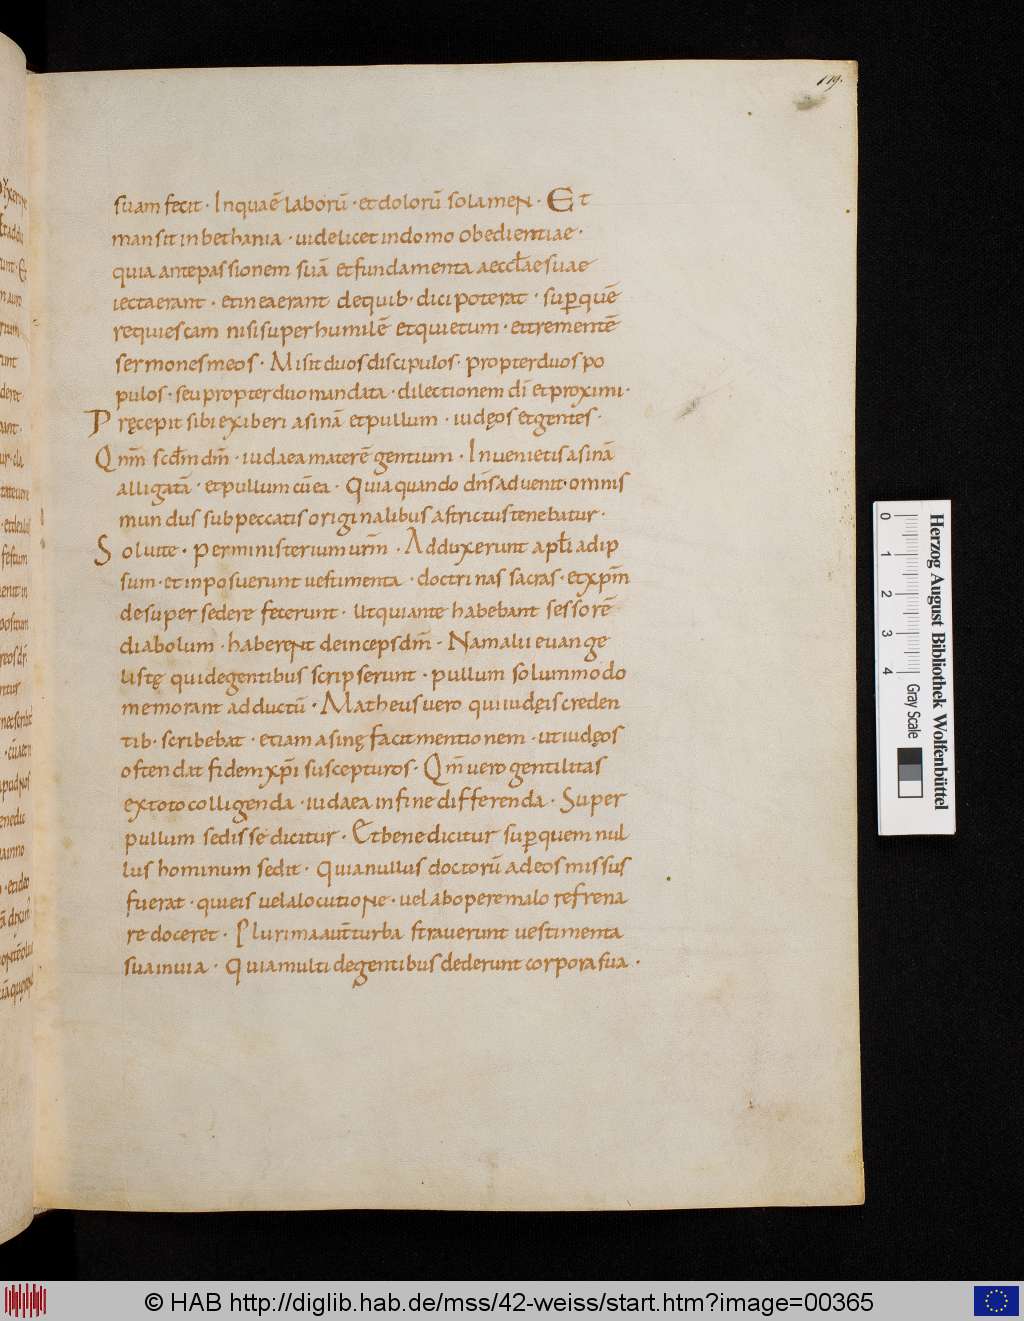 119.
suam fecit · In qua ē laborū · et dolorū solamen · Et
mansit in bethania · uidelicet in domo obedientiae ·
quia ante passionem suā et fundamenta aeccl̄ae suae
iecta erant · et in ea erant de quib· dici poterat · sup̱ quē
requiescam nisi super humilē et quietum · et trementē
sermones meos · Misit duos discipulos · propter duos po
pulos · seu propter duo mandata · dilectionem dī et proximi ·
Pręcepit sibi exiberi asinā et pullum · iudęos et gentes ·
Qnm̄ scd̄m dm̄ · iudaea materē gentium · Inuenietis asinā
alligatā · et pullum cū ea · Quia quando dn̄s aduenit · omnis
mundus sub peccatis originalibus astrictus tenebatur ·
Soluite · per ministerium ur̄m · Adduxerunt apl̄i ad ip
sum · et inposuerunt uestimenta · doctrinas sacras · et xp̄m
desuper sedere fecerunt · ut qui ante habebant sessorē
diabolum · haberent deinceps dm̄ · Nam alii euange
listę qui de gentibus scripserunt · pullum solummodo
memorant adductū · Matheus uero qui iudęis creden
tib· scribebat · etiam asinę facit mentionem · ut iudęos
ostendat fidem xp̄i suscepturos · Qm̄ uero gentilitas
ex toto colligenda · iudaea in fine differenda · Super
pullum sedisse dicitur · Et bene dicitur sup̱ quem nul
lus hominum sedit · Quia nullus doctorū ad eos missus
fuerat · qui eis uel a locutione · uel ab opere malo refrena
re doceret · Plurima aut̄ turba strauerunt uestimenta
sua in uia · Quia multi de gentibus dederunt corpora sua ·
0 1 2 3 4
Gray Scale
Herzog August Bibliothek Wolfenbüttel
© HAB http://diglib.hab.de/mss/42-weiss/start.htm?image=00365